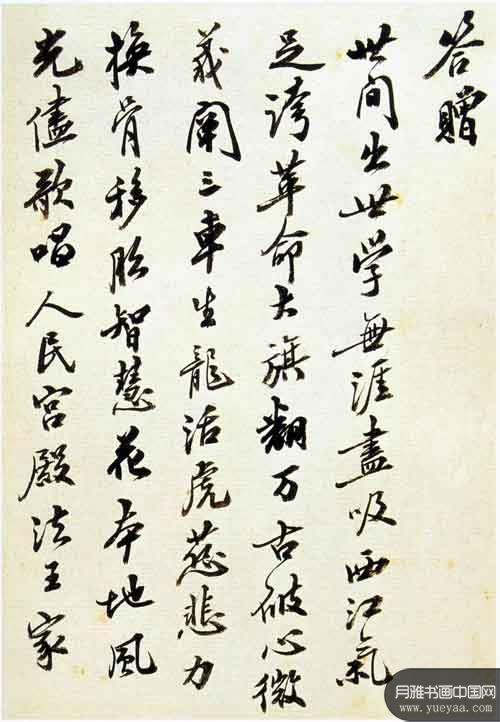 答贈
世间出世学無涯盡吸西江氣
足誇革命大旗翻万古破心微
義闡三車生龍活虎慈悲力
換骨移胎智慧花本地風
光儘歌唱人民宮殿法王家
月雅书画中国网
www.yueyaa.com